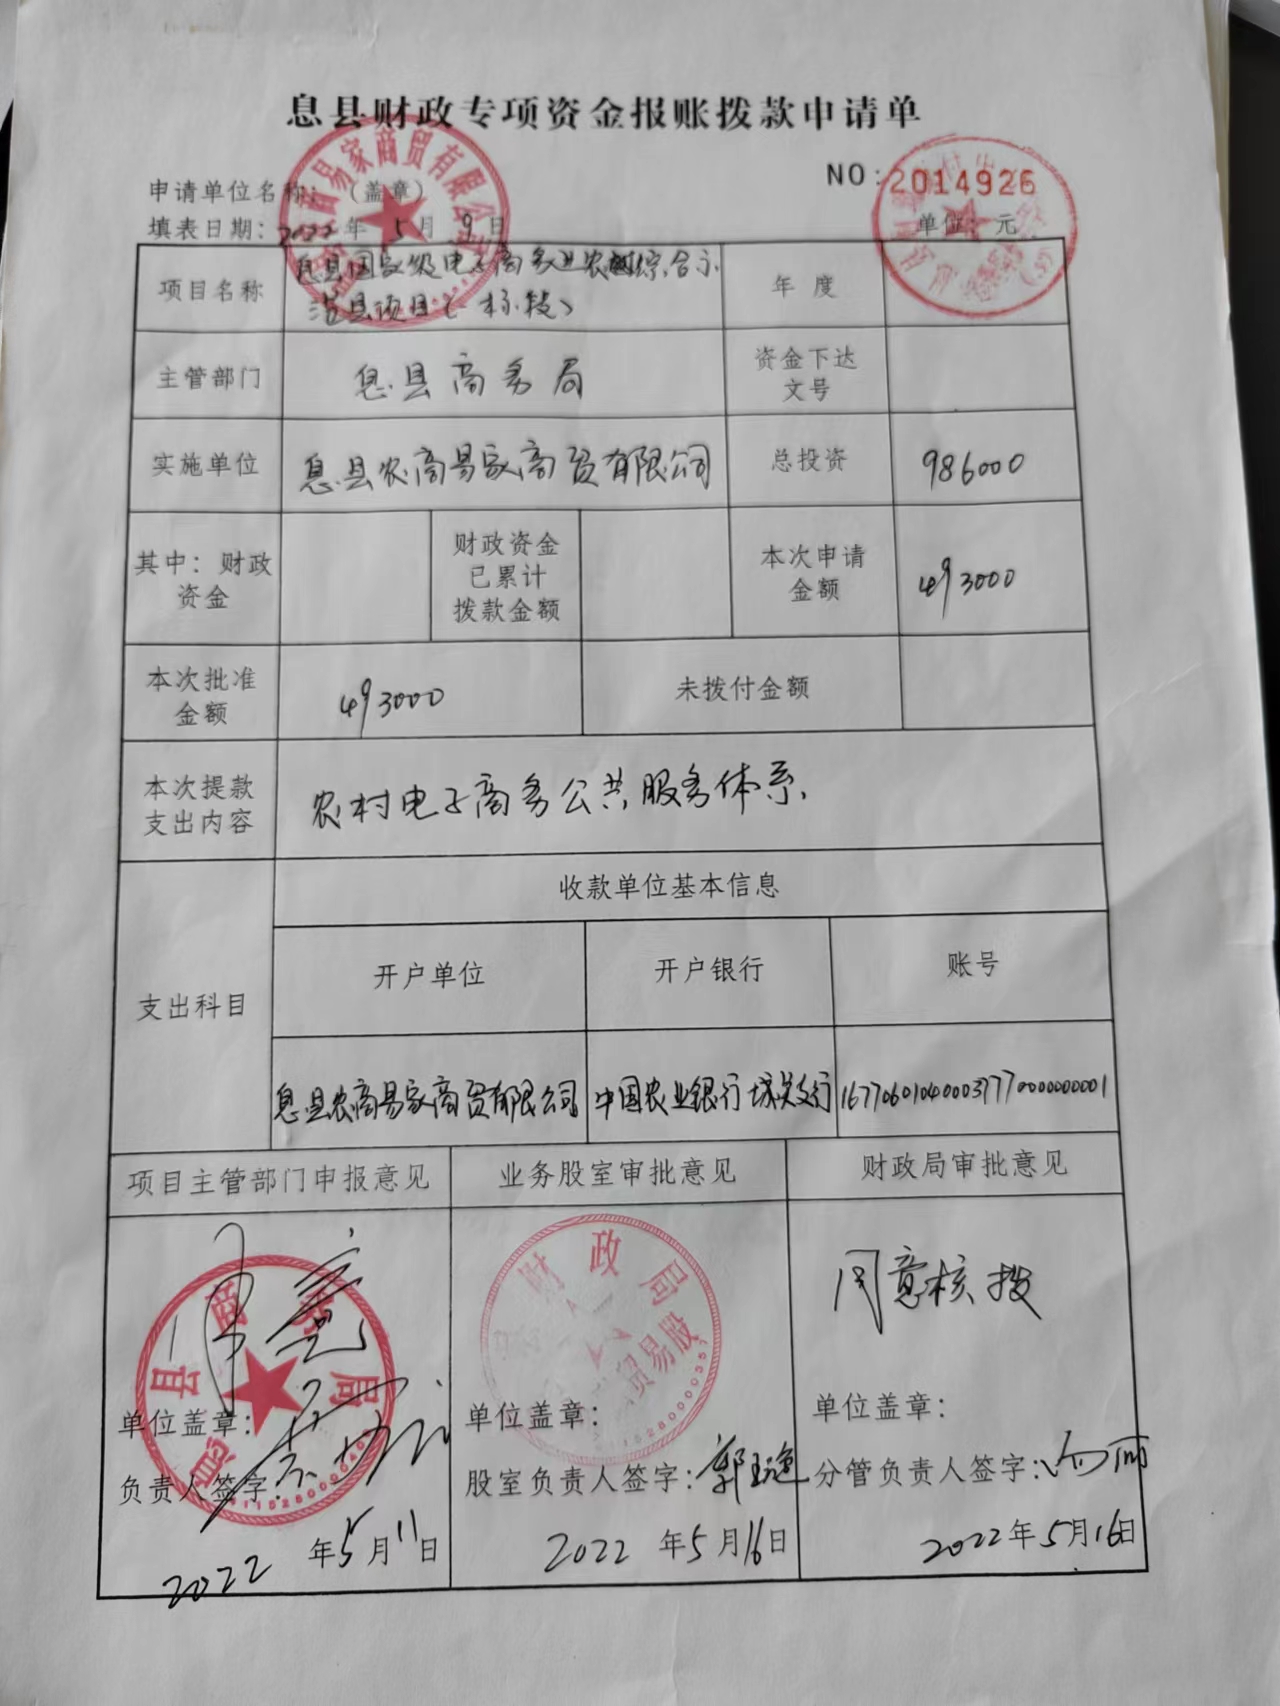 息县财政专项资金报账拨款申请单
NO:2014926
申请单位名称：（盖章）
填表日期：2022年5月9日
单位：元
项目名称
息县国家级电子商务进农村综合示
范县项目(一标段)
年度
主管部门
息县商务局
资金下达
文号
实施单位
息县农商易家商贸有限公司
总投资
986000
其中：财政
资金
财政资金
已累计
拨款金额
本次申请
金额
493000
本次批准
金额
493000
未拨付金额
本次提款
支出内容
农村电子商务公共服务体系
支出科目
收款单位基本信息
开户单位
开户银行
账号
息县农商易家商贸有限公司
中国农业银行城关支行
167706010400037770000000001
项目主管部门申报意见
业务股室审批意见
财政局审批意见
同意
息县商务局
财政局
贸易股
同意核拨
单位盖章：
负责人签字：
2022年5月11日
单位盖章：
股室负责人签字：郭
2022年5月16日
单位盖章：
分管负责人签字：
2022年5月16日